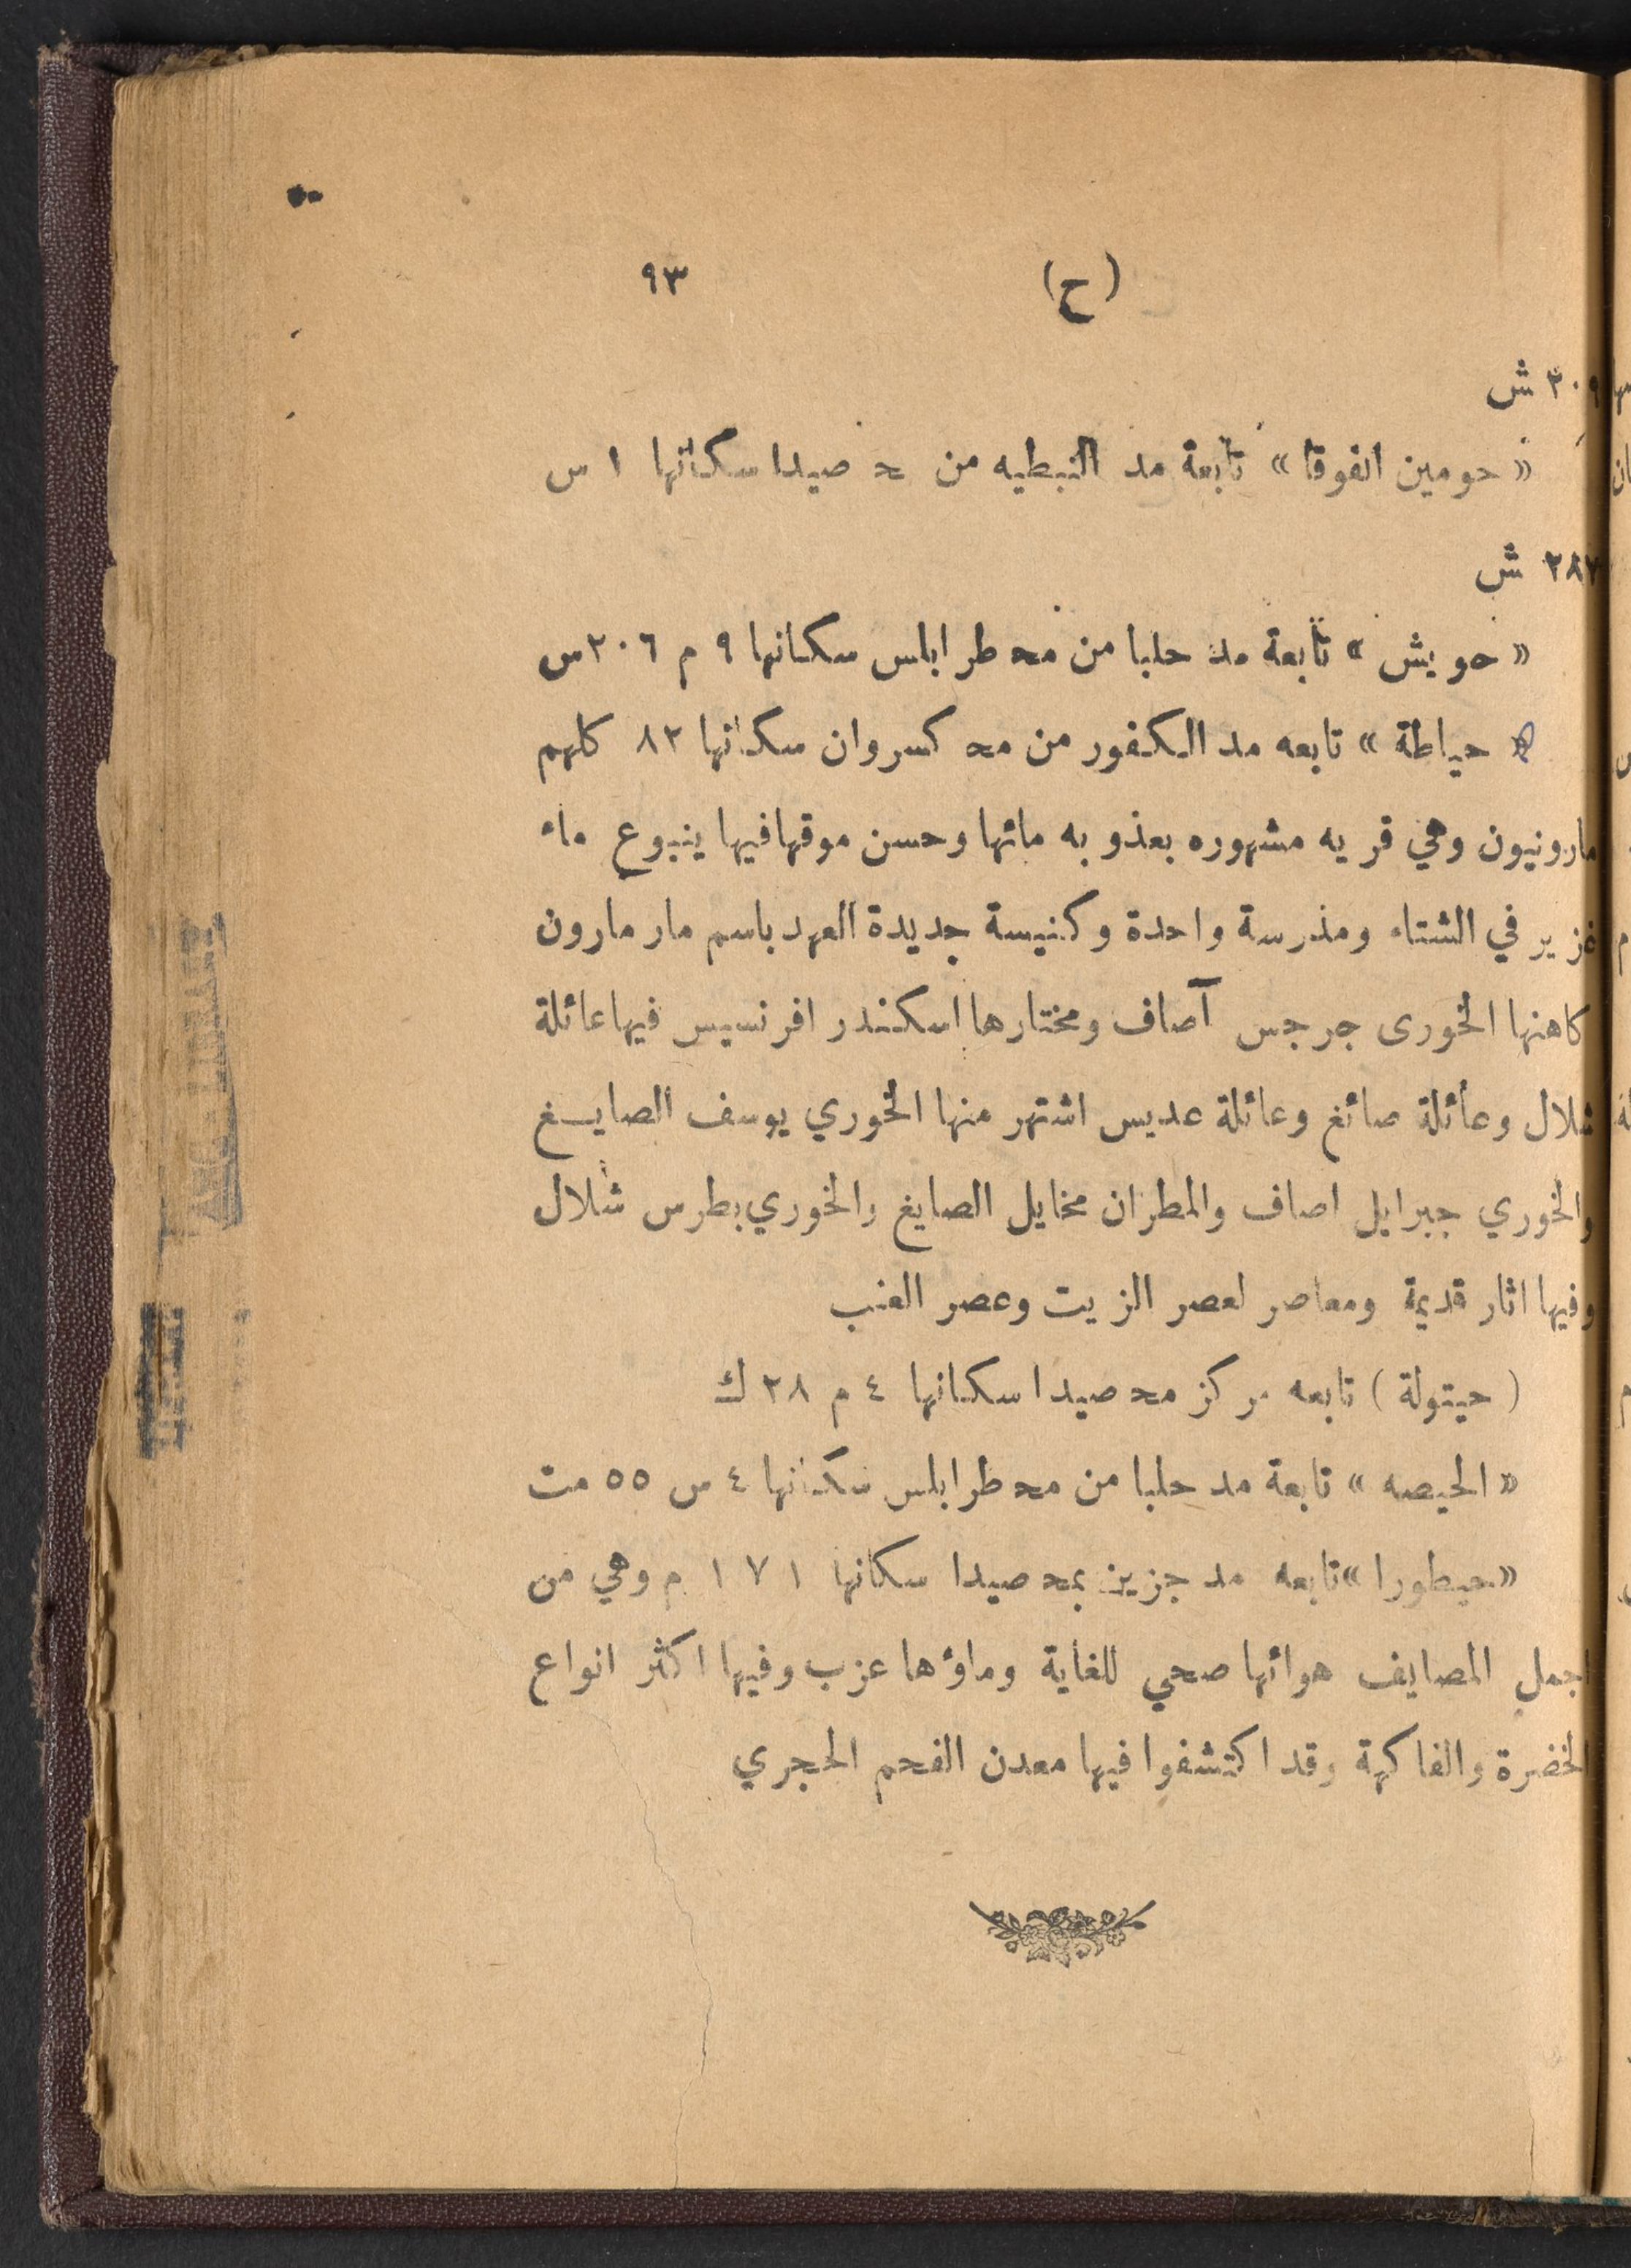 (ح) ٩٣
٢٠٩ ش
« حومين الفوقا » تابعة مد النبطيه من ح صيدا سكانها ١ س
٢٨٧ ش
« حويش » تابعة مد حلبا من مح طرابلس سكانها ٩ م ٢٠٦ س
« حياطة » تابعه مد الكفور من مح كسروان سكانها ٨٣ كلهم
مارونيون وهي قريه مشهوره بعذوبه مائها وحسن موقها فيها ينبوع ماء
غزير في الشتاء ومذرسة واحدة وكنيسة جديدة العهد باسم مار مارون
كاهنها الخورى جرجس آصاف ومختارها اسكندر افرنسيس فيها عائلة
شلال وعائلة صائغ وعائلة عديس اشتهر منها الخوري يوسف الصايغ
والخوري جبرايل اصاف والمطران مخايل الصايغ والخوري بطرس شلال
وفيها اثار قديمة ومعاصر لعصر الزيت وعصر العنب
( حيتولة ) تابعه مركز مح صيدا سكانها ٤ م ٢٨ ك
« الحيصه » تابعة مد حلبا من مح طرابلس سكانها ٤ س ٥٥ مت
« حيطورا » تابعه مد جزين بمح صيدا سكانها ١٧١ م وهي من
اجمل المصايف هوائها صحي للغاية وماؤها عزب وفيها اكثر انواع
الخضرة والفاكهة وقد اكتشفوا فيها معدن الفحم الحجري